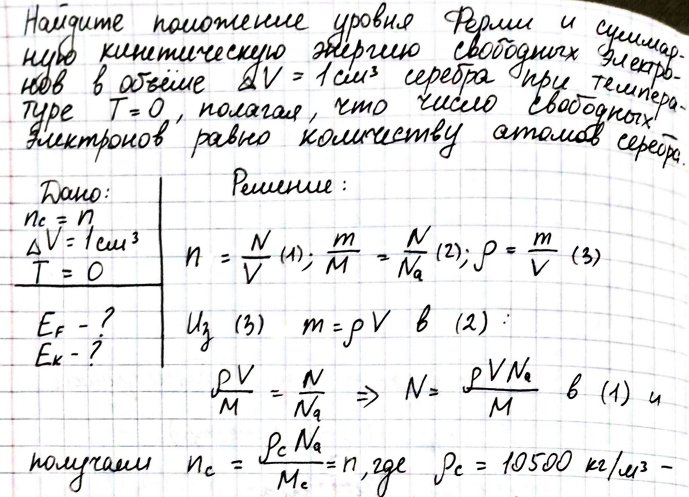 Найдите положение уровня Ферми и суммар-
ную кинетическую энергию свободных электро-
нов в объёме ΔV = 1 см³ серебра при темпера-
туре T = 0, полагая, что число свободных
электронов равно количеству атомов серебра.
Дано:
nc = n
ΔV = 1 см³
T = 0
EF - ?
Eк - ?
Решение:
n = N/V (1); m/M = N/Na (2); ρ = m/V (3)
Из (3) m = ρV в (2):
ρV/M = N/Na => N = ρVNa/M в (1) и
получаем nc = ρcNa/Mc = n, где ρc = 10500 кг/м³ -